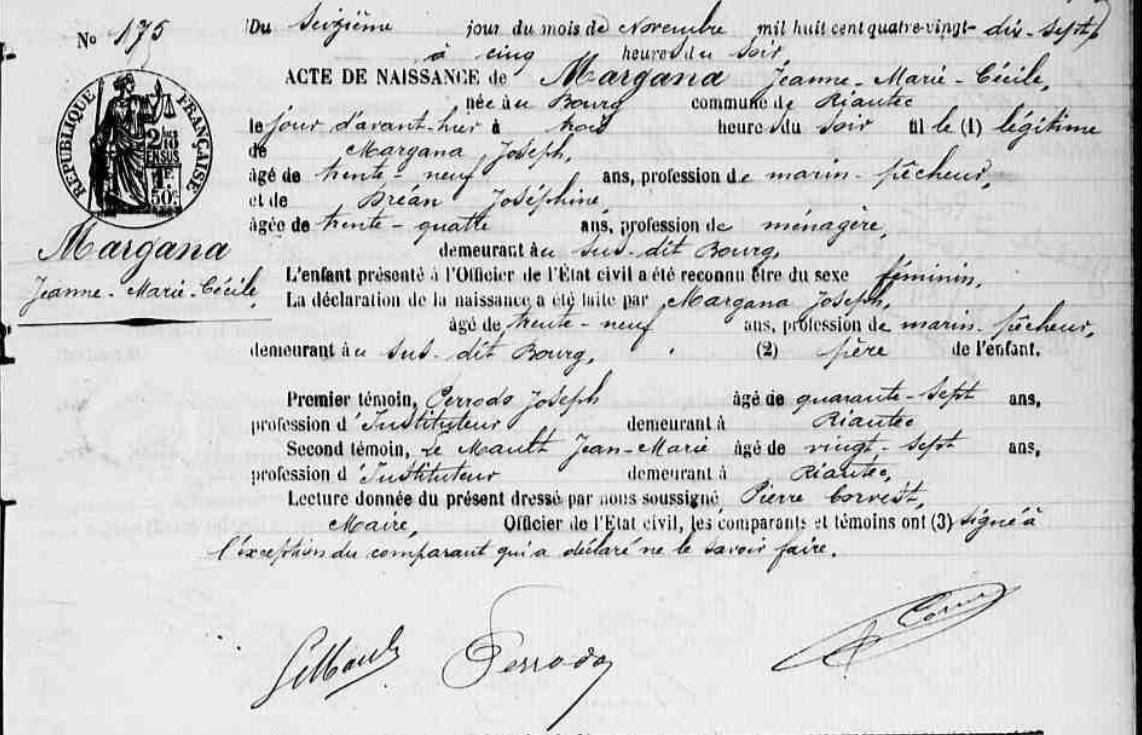 No 175
Du Seizième jour du mois de Novembre mil huit cent quatre-vingt-dix-sept,
à cinq heures du soir
ACTE DE NAISSANCE de Margana Jeanne-Marie-Cécile,
née au Bourg commune de Riantec
le jour d'avant-hier à trois heures du soir fille (1) légitime
de Margana Joseph,
âgé de trente-neuf ans, profession de marin-pêcheur,
et de Bréan Joséphine,
âgée de trente-quatre ans, profession de ménagère,
demeurant au sus-dit Bourg,
L'enfant présenté à l'Officier de l'État civil a été reconnu être du sexe féminin.
La déclaration de la naissance a été faite par Margana Joseph,
âgé de trente-neuf ans, profession de marin-pêcheur,
demeurant au sus-dit Bourg, (2) père de l'enfant.
Premier témoin, Perrodo Joseph âgé de quarante-sept ans,
profession d'Instituteur demeurant à Riantec
Second témoin, Le Mault Jean-Marie âgé de vingt-sept ans,
profession d'Instituteur demeurant à Riantec,
Lecture donnée du présent dressé par nous soussigné, Pierre Corvest,
Maire, Officier de l'Etat civil, les comparants et témoins ont (3) signé à
l'exception du comparant qui a déclaré ne le savoir faire.
RÉPUBLIQUE FRANÇAISE
2/10
EN SUS
1F.
50c.
Margana
Jeanne-Marie-Cécile,
LeMault Perrodo